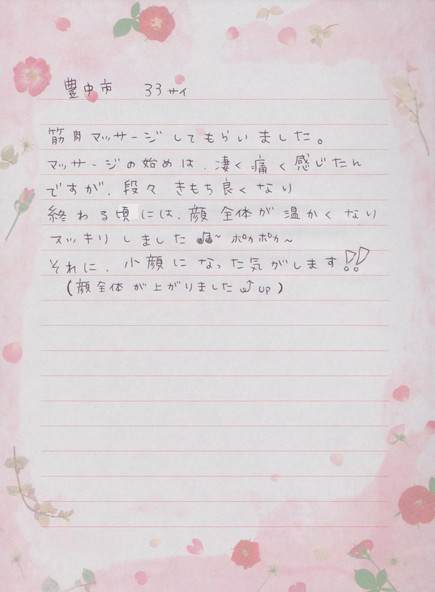 豊中市 33サイ
筋肉マッサージしてもらいました。
マッサージの始めは、凄く痛く感じたん
ですが、段々きもち良くなり
終わる頃には、顔全体が温かくなり
スッキリしました♫~ ポカポカ~
それに、小顔になった気がします!!
(顔全体が上がりました⤴UP)